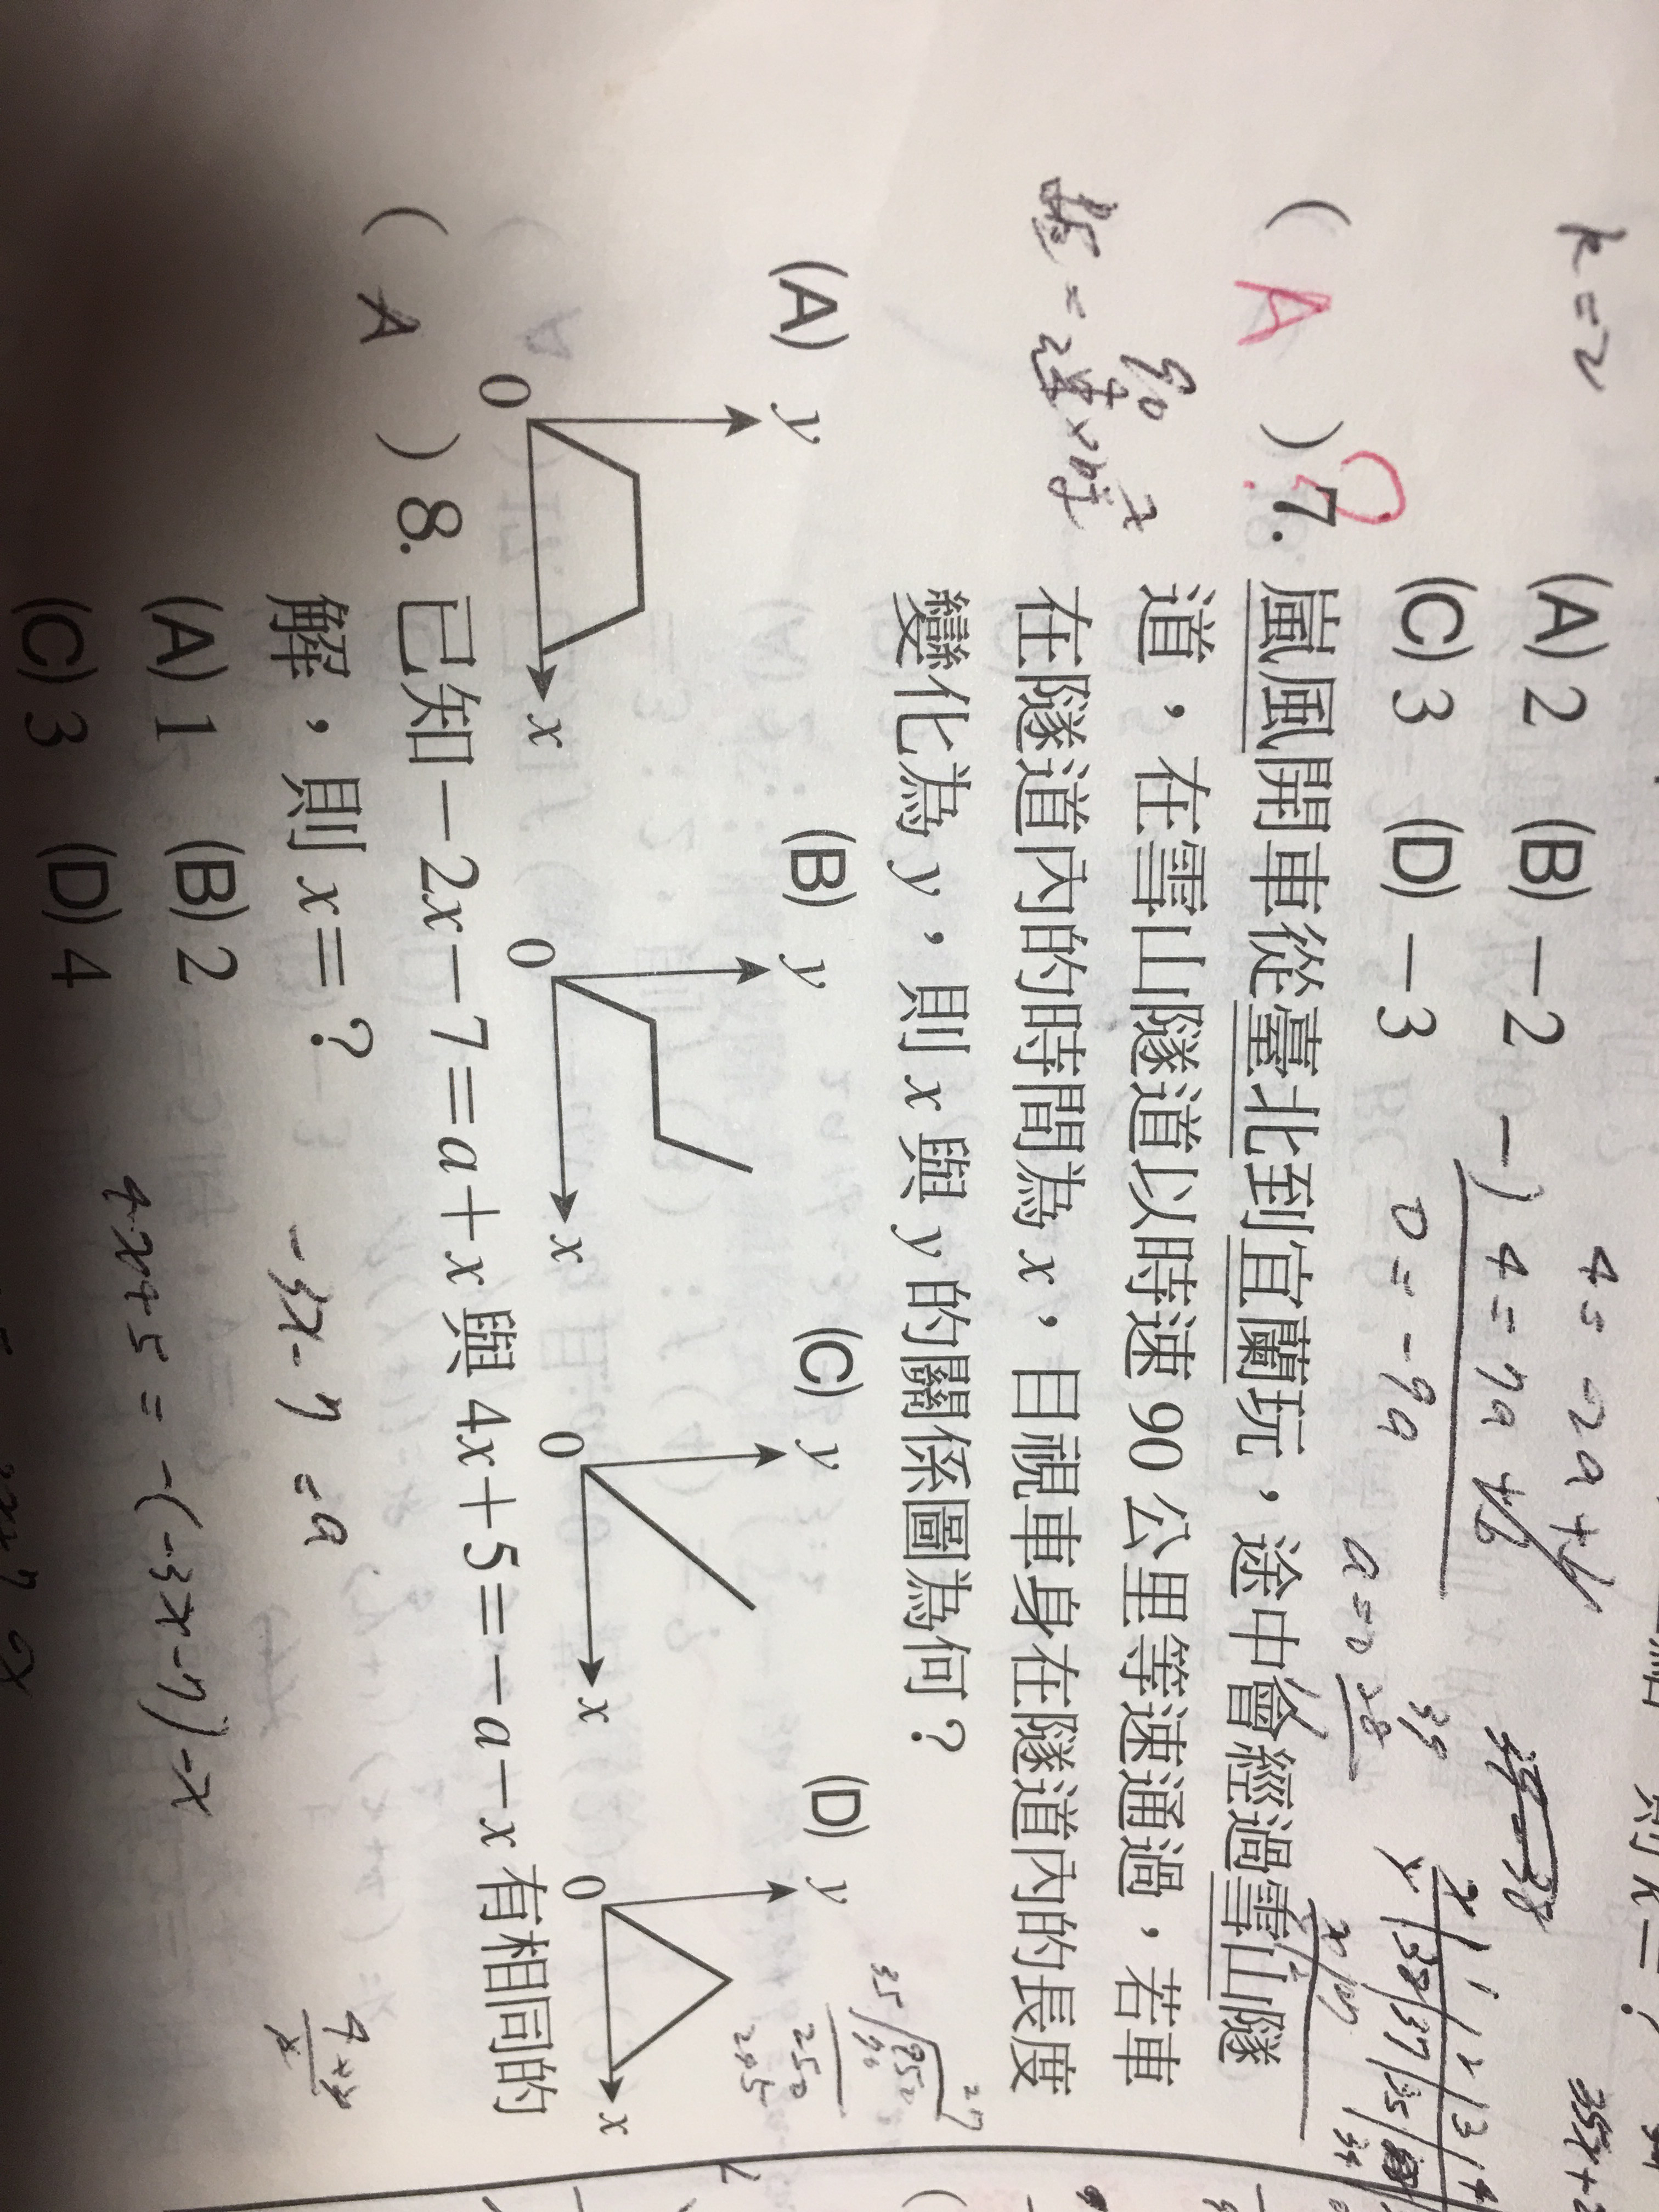 k=2
(A) 2 (B) −2
(C) 3 (D) −3
4=-2a+b
-) 4=7a+b
0=-9a
a=0
( A ) 7. 嵐風開車從臺北到宜蘭玩,途中會經過雪山隧
道,在雪山隧道以時速 90 公里等速通過,若車
在隧道內的時間為 x,目視車身在隧道內的長度
變化為 y,則 x 與 y 的關係圖為何?
90 x
距=速×時
(A) (B) (C) (D)
y y y y
0 x 0 x 0 x 0 x
( A ) 8. 已知−2x−7=a+x 與 4x+5=−a−x 有相同的
解,則 x=?
-3x-7=a
(A) 1 (B) 2
4x+5=-(-3x-7)-x
(C) 3 (D) 4